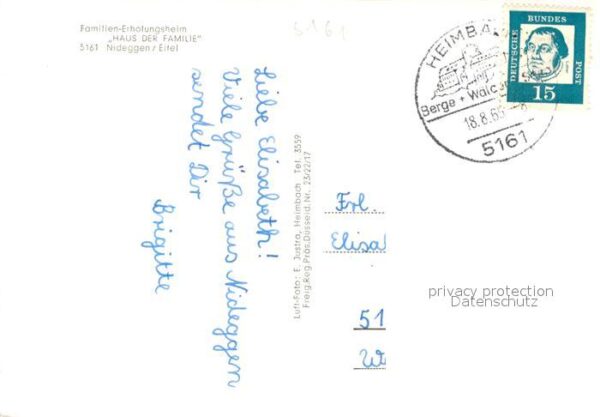 Familien-Erholungsheim
„HAUS DER FAMILIE"
5161 Nideggen / Eifel
5161
Liebe Elisabeth!
Viele Grüße aus Nideggen
sendet Dir
Brigitte
Luft-Foto: E. Justra, Heimbach Tel. 3559
Freig. Reg. Präs. Düsseld. Nr. 23/22/17
HEIMBA
Berge + Wald
18.8.6
5161
DEUTSCHE
BUNDES
POST
15
Frl.
Elisa
51
W
privacy protection
Datenschutz